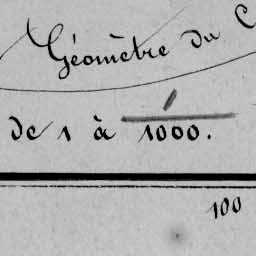 Géomètre du C
1
de 1 à 1000.
100